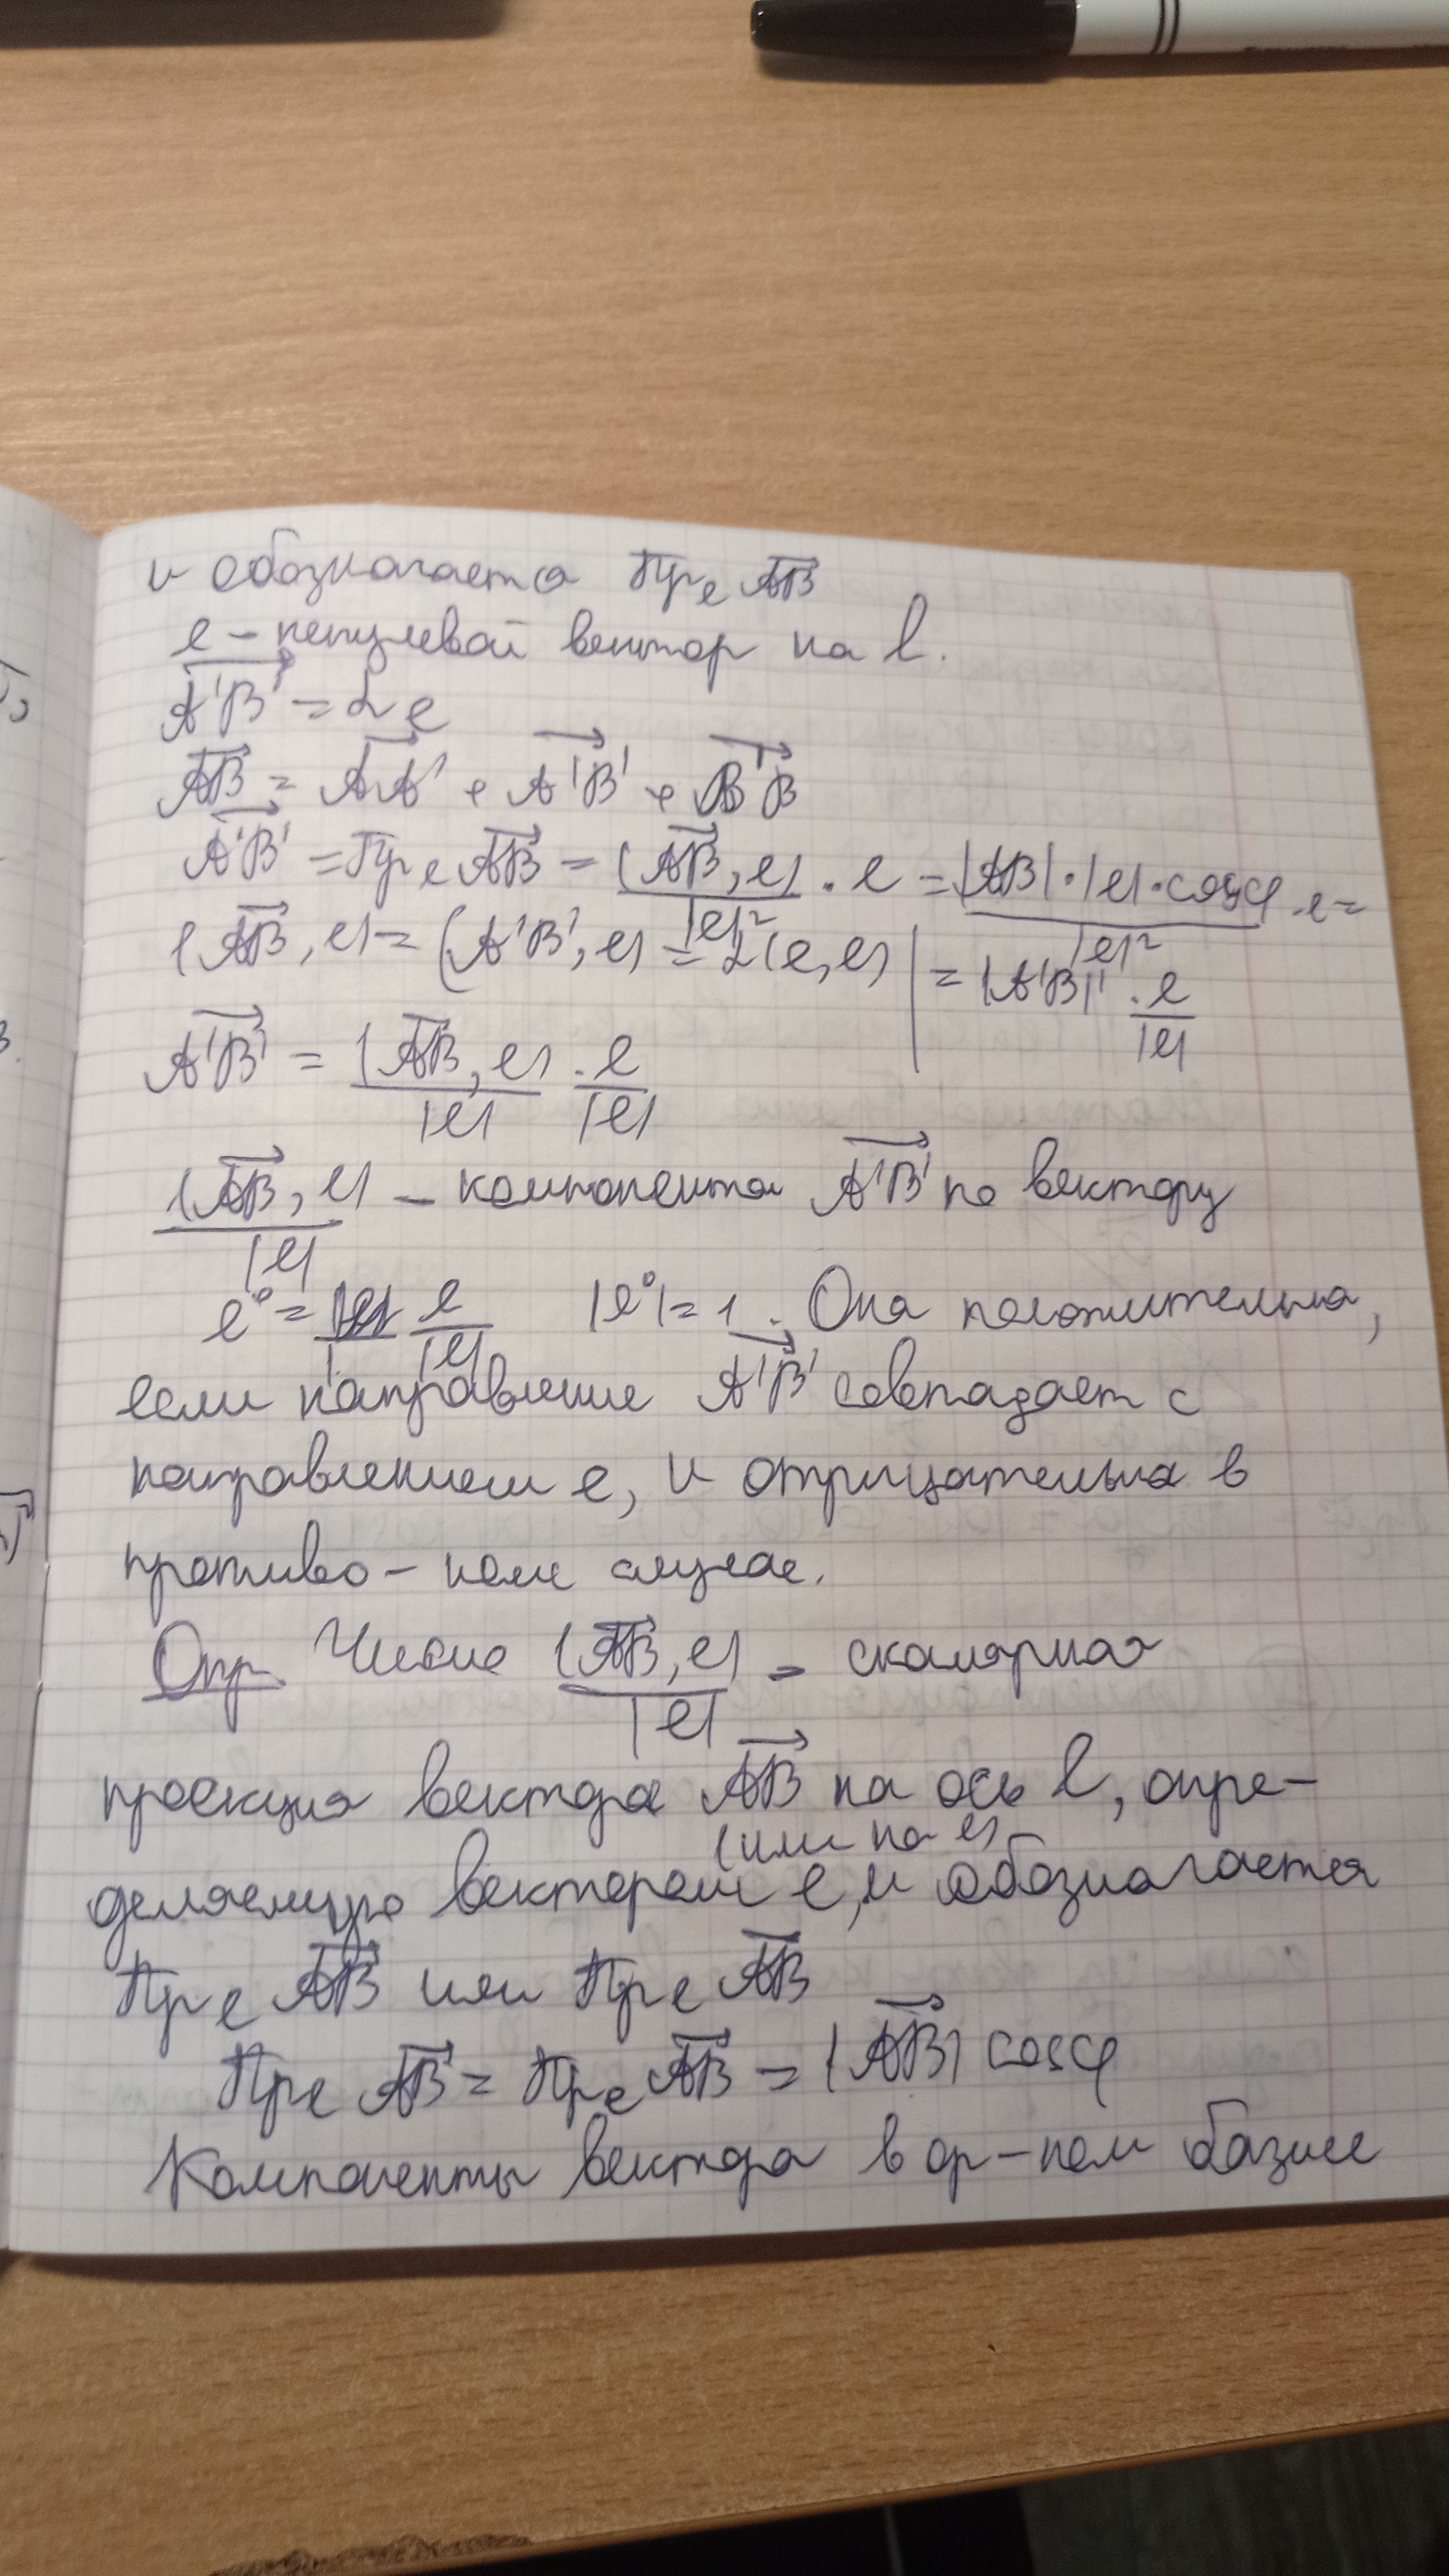 и обозначается Пр_e AB
e – ненулевой вектор на l.
A'B' = αe
AB = AA' + A'B' + B'B
A'B' = Пр_e AB = (AB, e)/|e|² · e = |AB|·|e|·cosφ/|e|² · e =
(AB, e) = (A'B', e) = α(e, e) | = |A'B'| · e/|e|
A'B' = (AB, e)/|e| · e/|e|
(AB, e)/|e| – компонента A'B' по вектору
e° = e/|e| |e°| = 1. Она положительна,
если направление A'B' совпадает с
направлением e, и отрицательна в
противо – ном случае.
Опр. Число (AB, e)/|e| – скалярная
проекция вектора AB на ось l, опре-
(или на e)
деляемую вектором e, и обозначается
Пр_l AB или Пр_e AB
Пр_l AB = Пр_e AB = |AB| cosφ
Компоненты вектора в ор–ном базисе